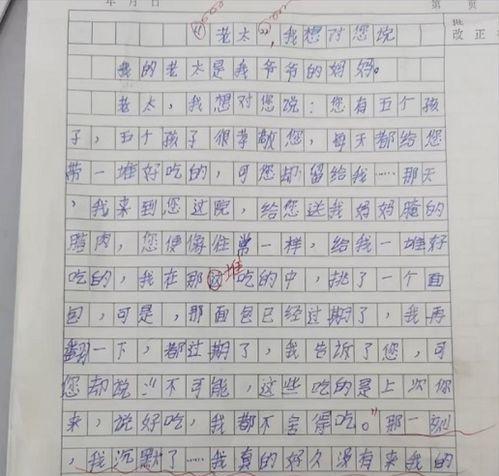 年 月 日 第 页
批
改正
“老太”，我想对您说
我的老太是我爷爷的妈妈。
老太，我想对您说：您有五个孩
子，五个孩子很孝敬您，每天都给您
带一堆好吃的，可您却留给我……那天
，我来到您这院，给您送我妈妈腌的
腊肉，您便像往常一样，给我一堆好
吃的，我在那这堆吃的中，挑了一个面
包，可是，那面包已经过期了，我再
翻一下，都过期了，我告诉了您，可
您却说“不可能，这些吃的是上次你
来，说好吃，我都不舍得吃。”那一刻
，我沉默了……我真的好久没有来我的